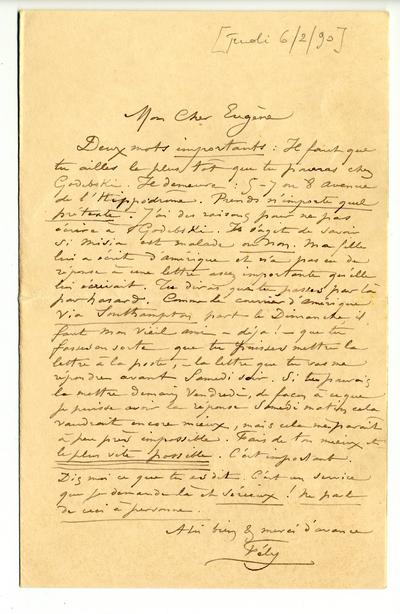 [Jeudi 6/2/90]
Mon Cher Eugène
Deux mots importants : Il faut que
tu ailles le plus tôt que tu pourras chez
Godebski. Il demeure : 5-7 ou 8 avenue
de l'Hippodrome. Prends n'importe quel
prétexte. J'ai des raisons pour ne pas
écrire à Godebski. Il s'agit de savoir
si Misia est malade ou non. Ma fille
lui a écrit d'Amérique et n'a pas eu de
réponse à une lettre assez importante qu'elle
lui écrivait. Tu diras que tu passes par là
par hasard. Comme le courrier d'Amérique
via Southampton part le Dimanche il
faut mon vieil ami – déjà ! – que tu
fasses en sorte que tu puisses mettre la
lettre à la poste, – la lettre que tu vas me
répondre avant Samedi soir. Si tu pouvais
la mettre demain Vendredi, de façon à ce que
je puisse avoir la réponse Samedi matin, cela
vaudrait encore mieux, mais cela me paraît
à peu près impossible. Fais de ton mieux et
le plus vite possible. C'est important.
Dis moi ce que tu as dit. C'est un service
que je demande là et sérieux ! Ne parle
de ceci à personne.
A toi bien & merci d'avance
Fély